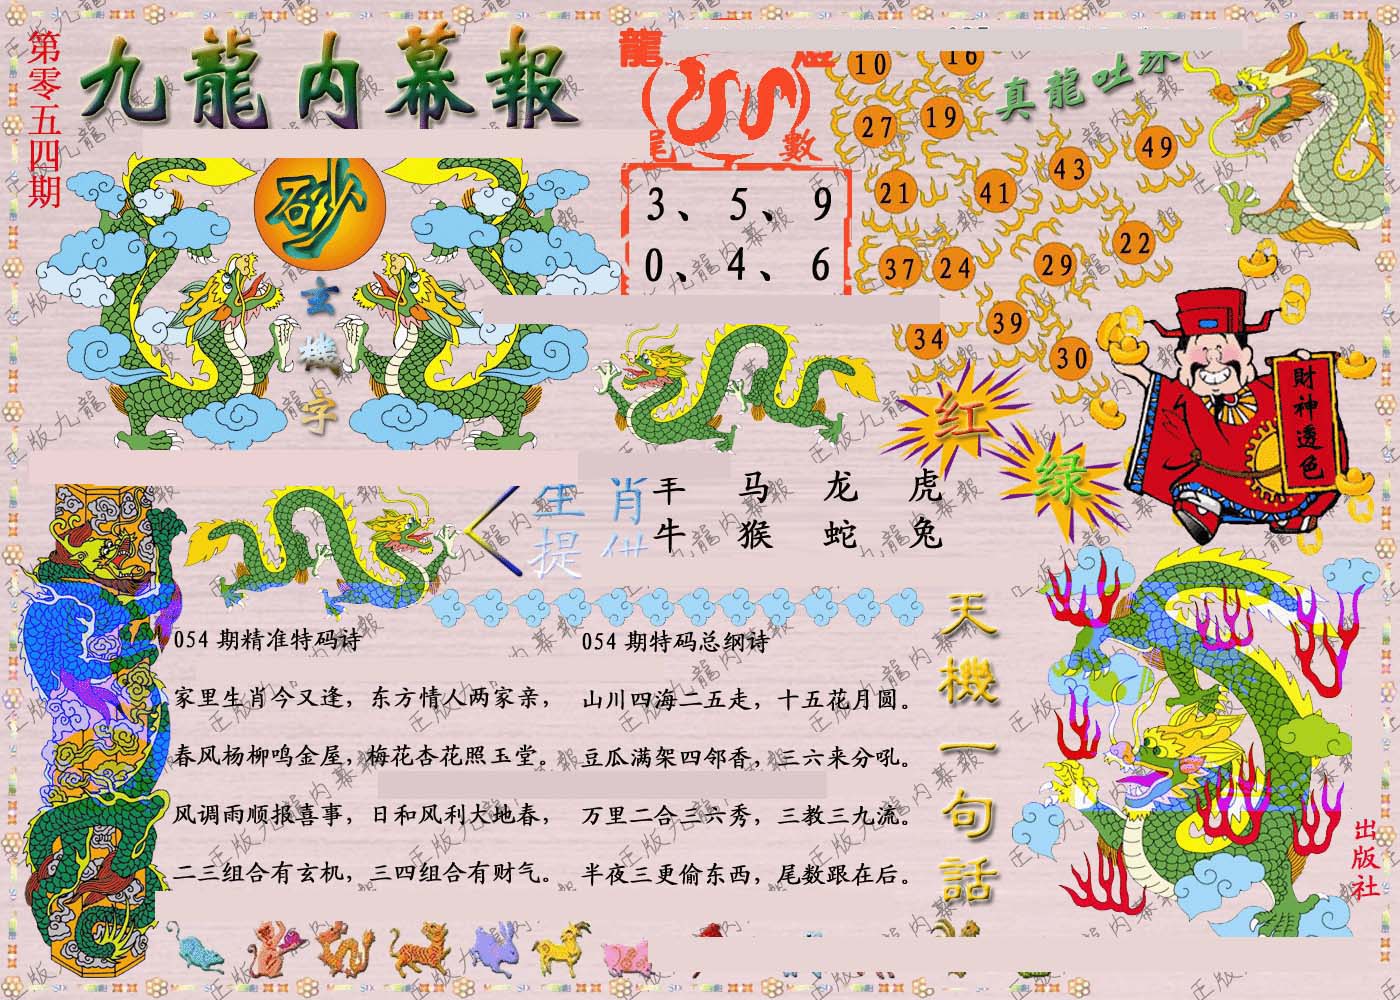 第零五四期
九龍内幕報
砂
玄機字
龍
尾數
3、5、9
0、4、6
真龍吐珠
10
16
27
19
49
43
21
41
22
37
24
29
39
34
30
財神透色
红
绿
生肖
提供
羊 马 龙 虎
牛 猴 蛇 兔
054 期精准特码诗
家里生肖今又逢，东方情人两家亲，
春风杨柳鸣金屋，梅花杏花照玉堂。
风调雨顺报喜事，日和风利大地春，
二三组合有玄机，三四组合有财气。
054 期特码总纲诗
山川四海二五走，十五花月圆。
豆瓜满架四邻香，三六来分吼。
万里二合三六秀，三教三九流。
半夜三更偷东西，尾数跟在后。
天機一句話
出版社
正版九龍内幕報